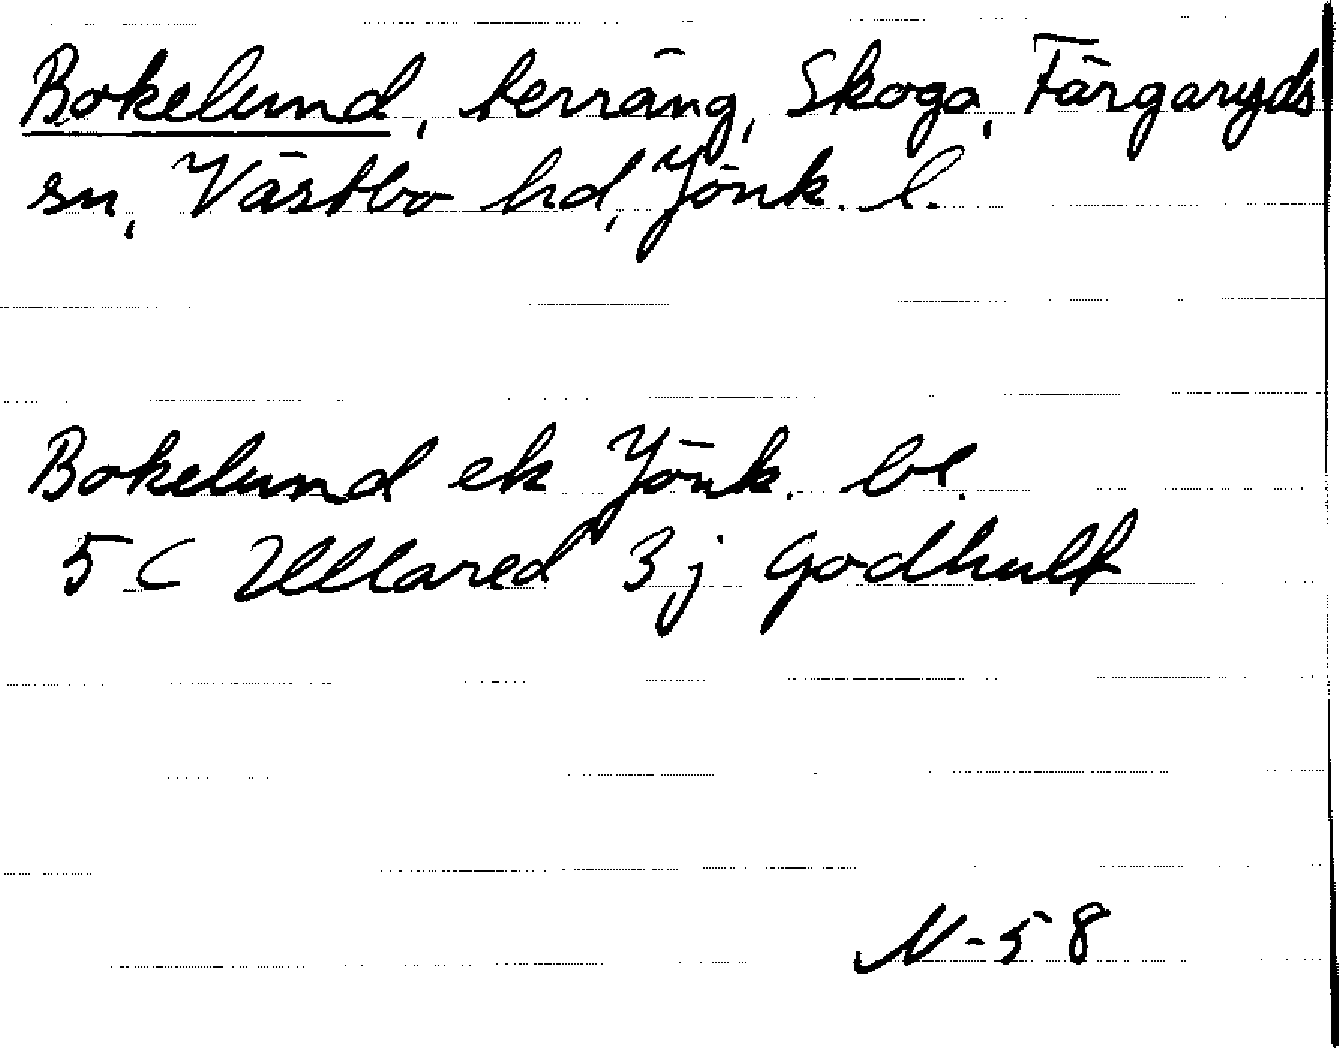 Bokelund, terräng, Skoga, Färgaryds
sn, Västbo hd, Jönk. l.
Bokelund ek Jönk. bl.
5 C Ullared 3 j Godhult
N-58